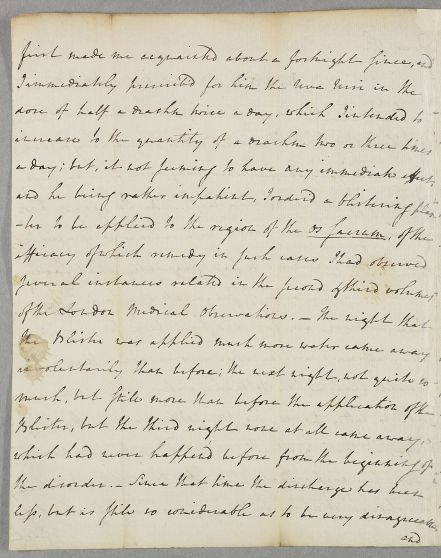 first made me acquainted about a fortnight since, and
I immediately prescrib'd for him the Uva Ursi in the
dose of half a drachm twice a day, which I intended to
increase to the quantity of a drachm two or three times
a day; but, it not seeming to have any immediate effect,
and he being rather impatient, I order'd a blistering plas
-ter to be applied to the region of the os sacrum, of the
efficacy of which remedy in such cases I had observed
several instances related in the second & third volumes
of the London Medical Observations. – The night that
the Blister was applied much more water came away
involuntarily than before; the next night, not quite so
much, but still more than before the application of the
Blister, but the third night none at all came away,
which had never happen'd before from the beginning of
the disorder. – Since that time the discharge has been
less, but is still so considerable as to be very disagreeable
and